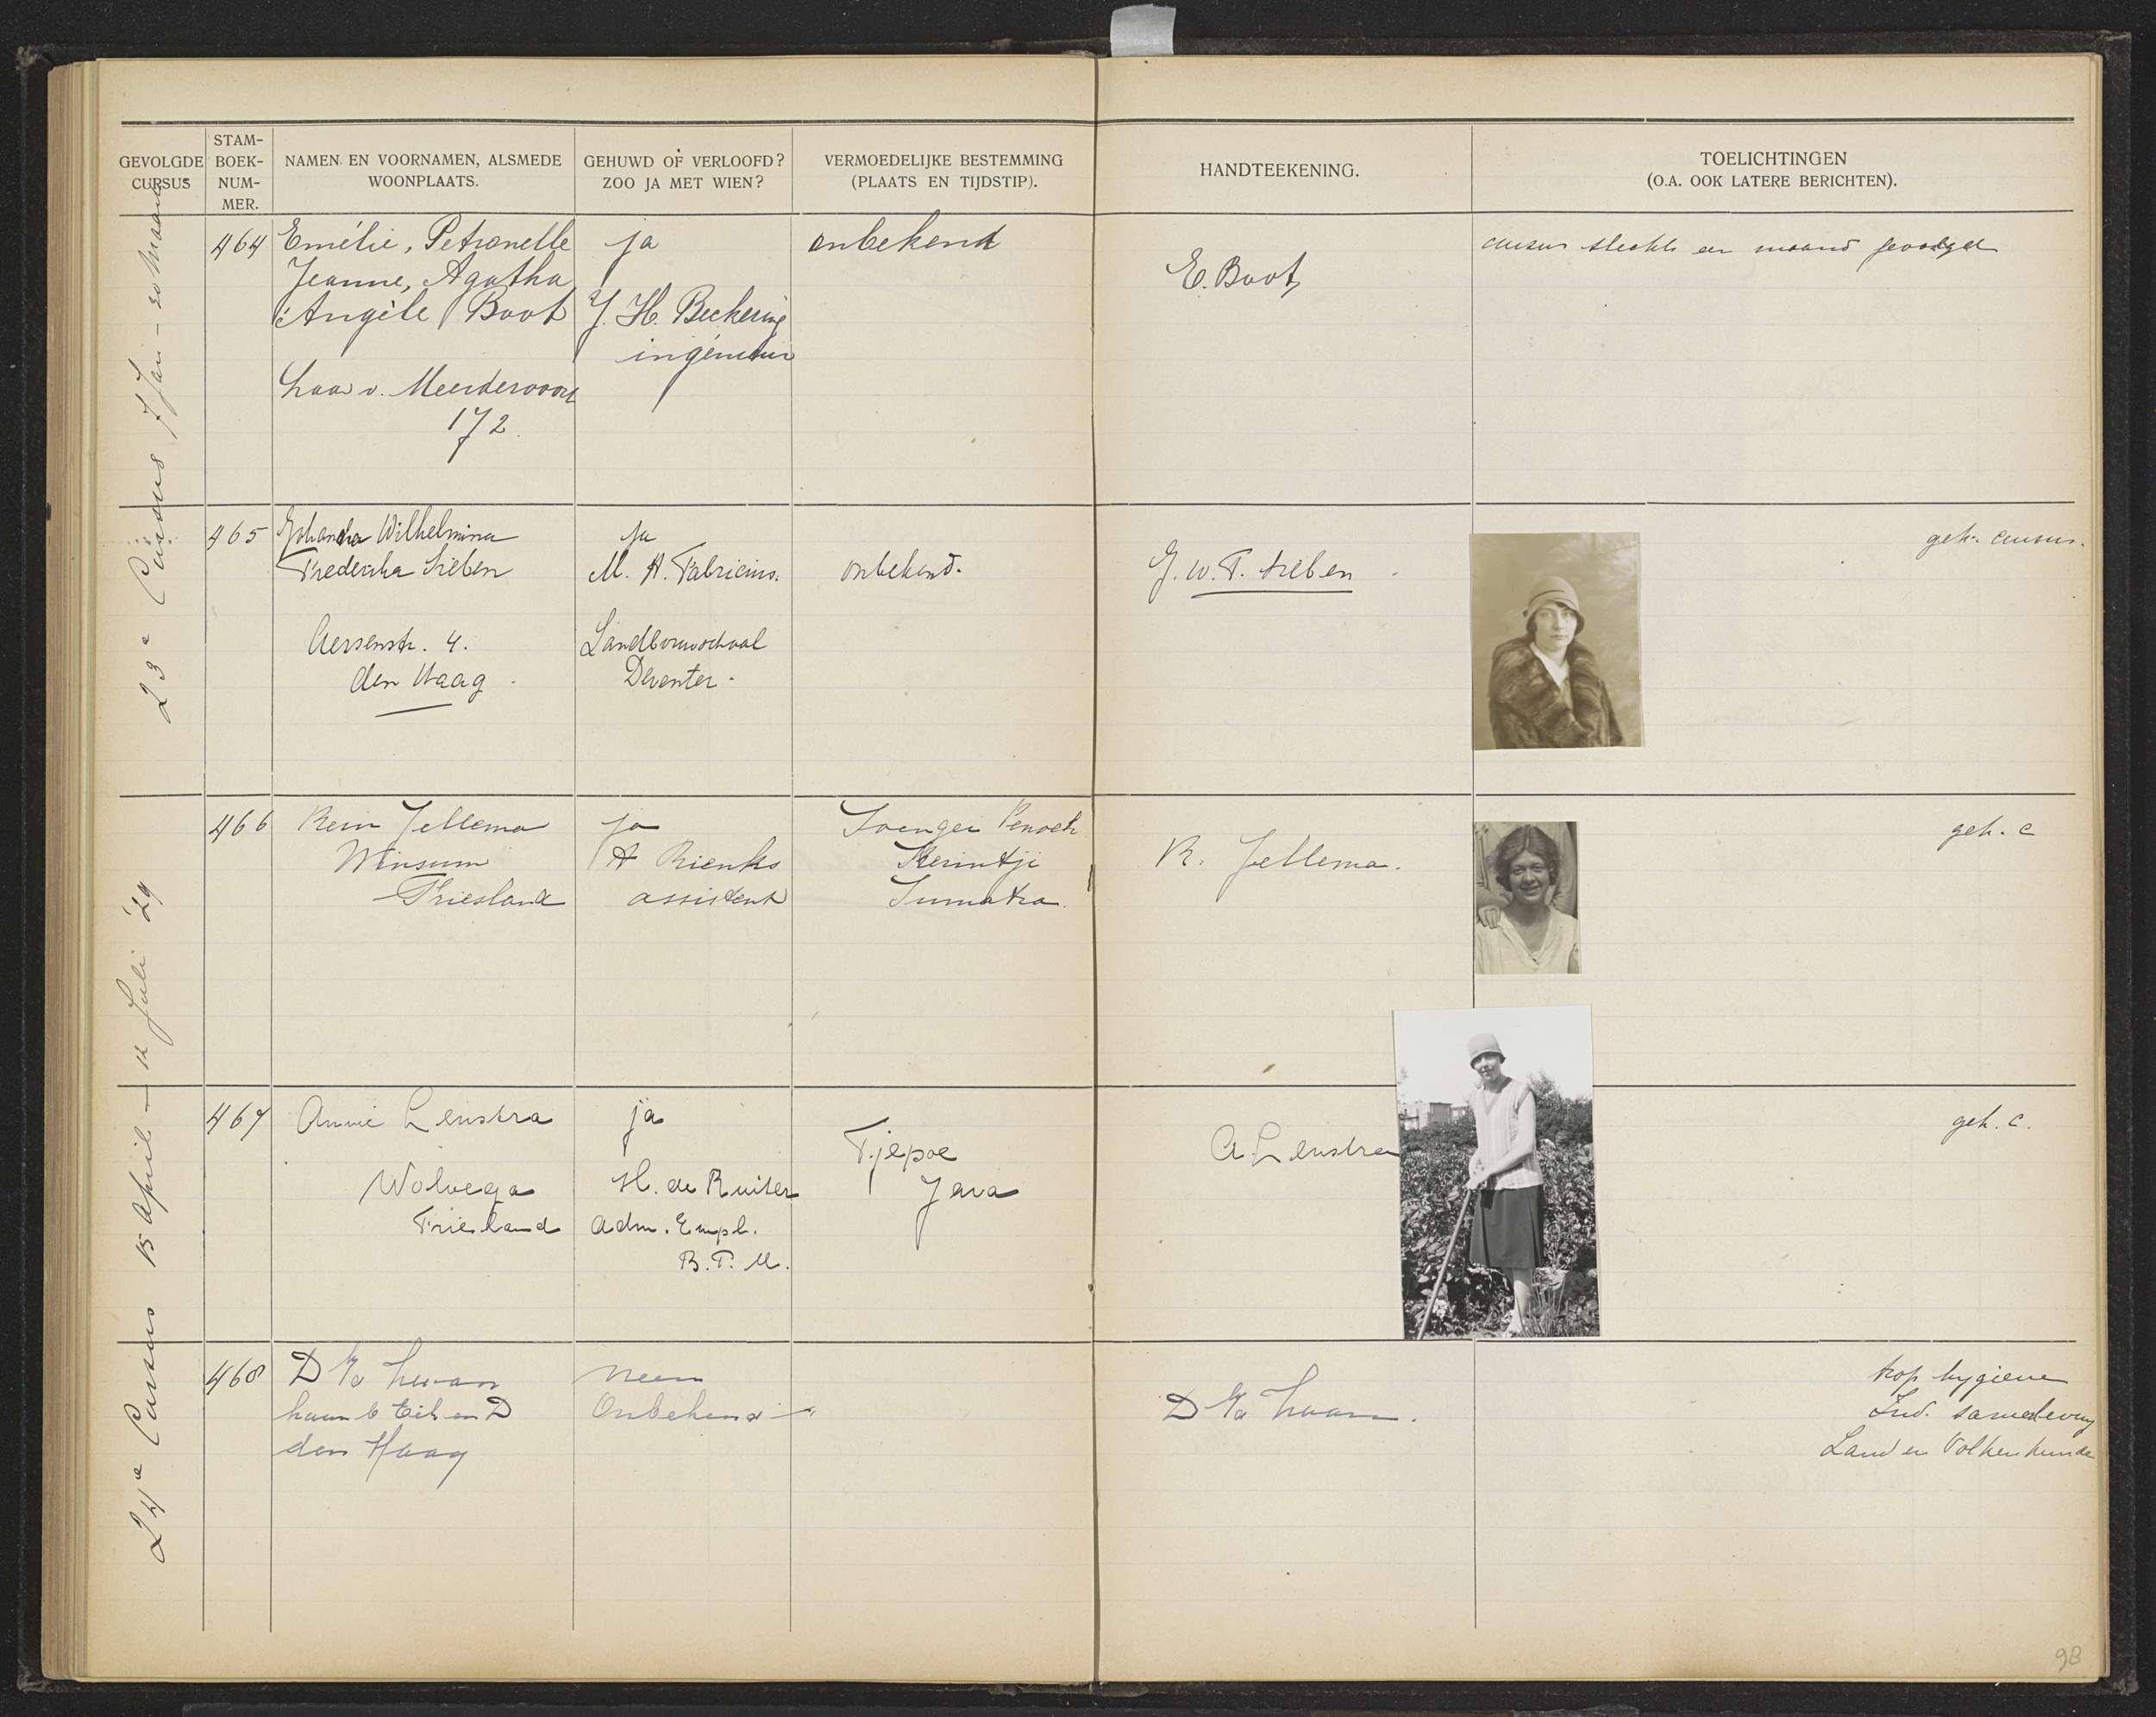 GEVOLGDE CURSUS
STAM-BOEK-NUM-MER.
NAMEN EN VOORNAMEN, ALSMEDE WOONPLAATS.
GEHUWD OF VERLOOFD? ZOO JA MET WIEN?
VERMOEDELIJKE BESTEMMING (PLAATS EN TIJDSTIP).
HANDTEEKENING.
TOELICHTINGEN (O.A. OOK LATERE BERICHTEN).
23e Cursus 7 Jan - 20 Maart
464
Emélie, Petronelle
Jeanne, Agatha
Angèle Boot
Laan v. Meerdervoort
172
ja
J. H. Beckering
ingenieur
onbekend
E. Boot
cursus slechts een maand gevolgd
465
Johanna Wilhelmina
Frederika Sieben
Aerssenstr. 4.
den Haag
Ja
M. A. Fabricius.
Landbouwschool
Deventer.
onbekend.
J. W. F. Sieben
geh. cursus.
24e Cursus 15 April - 12 Juli '29
466
Rein Jellema
Winsum
Friesland
ja
A Rienks
assistent
Soengei Penoeh
Kerintji
Sumatra
R. Jellema.
geh. c
467
Annie Lenstra
Wolvega
Friesland
ja
H. de Ruiter
Adm. Empl.
B.P.M.
Tjepoe
Java
A Lenstra
geh. c.
468
D
den Haag
Neen
Onbekend
D
trop hygiene
Ind. samenleving
Land en Volkenkunde
98